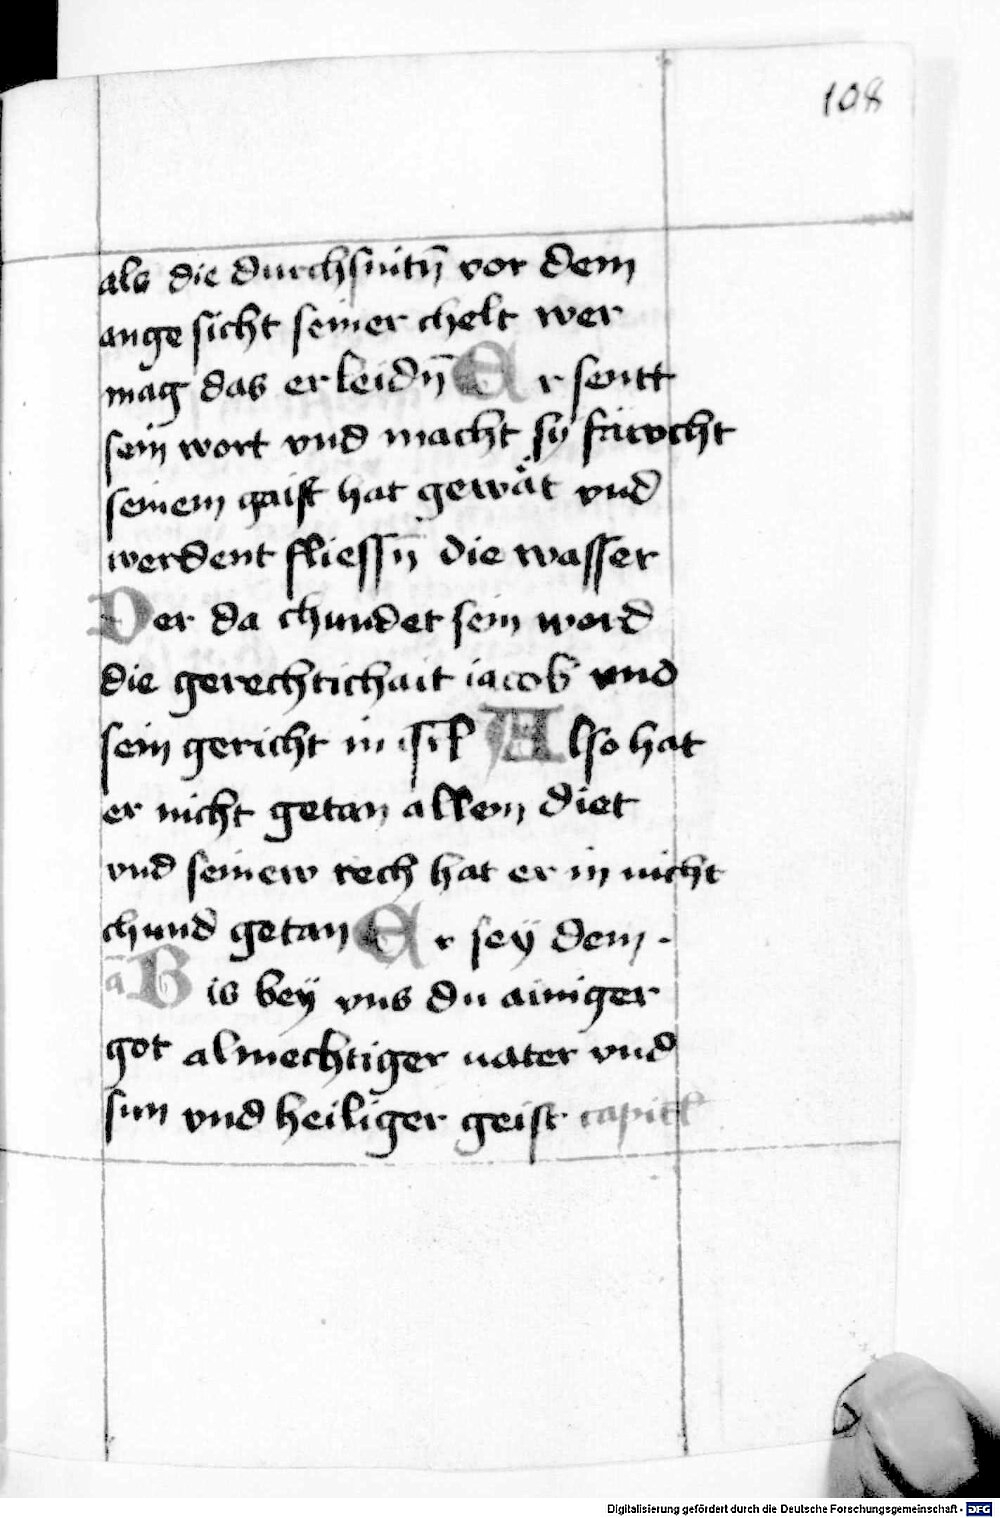 108
als die durchsnitn̄ vor dem
ange sicht seiner chelt wer
mag das erleidn̄ Er sentt
sein wort vnd macht sy fäwcht
seinem gaist hat gewåt vnd
werdent fliessn̄ die wasser
Der da chundet sein word
die gerechtichait iacob vnd
sein gericht in isrl̄ Also hat
er nicht getan allem diet
vnd seinew rech hat er in nicht
chund getan Er sey dem .
ā Bis beÿ vns du ainiger
got almechtiger uater vnd
sun vnd heiliger geist capitl̄
Digitalisierung gefördert durch die Deutsche Forschungsgemeinschaft - DFG